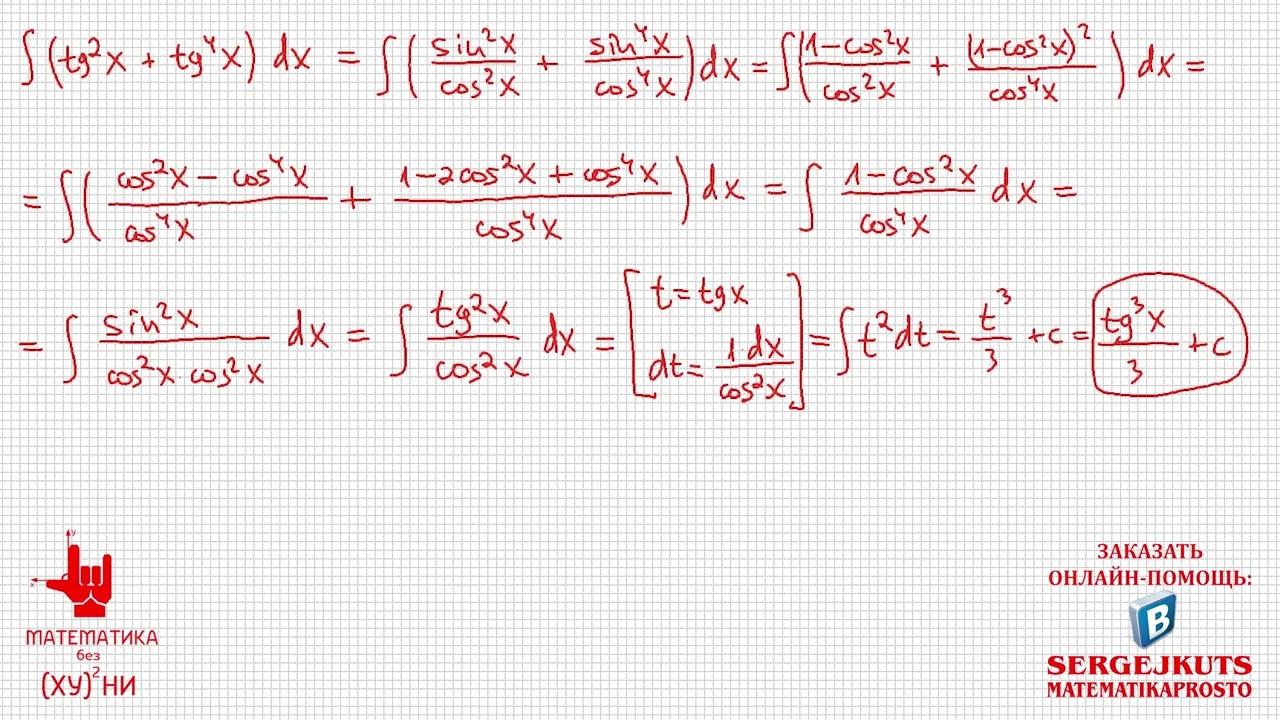 ∫(tg²x + tg⁴x) dx = ∫(sin²x/cos²x + sin⁴x/cos⁴x)dx = ∫(1-cos²x/cos²x + (1-cos²x)²/cos⁴x) dx =
= ∫(cos²x - cos⁴x/cos⁴x + 1-2cos²x + cos⁴x/cos⁴x) dx = ∫ 1-cos²x/cos⁴x dx =
= ∫ sin²x/cos²x·cos²x dx = ∫ tg²x/cos²x dx = [t = tgx dt = 1·dx/cos²x] = ∫t²dt = t³/3 + c = tg³x/3 + c
y
x
МАТЕМАТИКА
без
(ХУ)²НИ
ЗАКАЗАТЬ
ОНЛАЙН-ПОМОЩЬ:
B
SERGEJKUTS
MATEMATIKAPROSTO